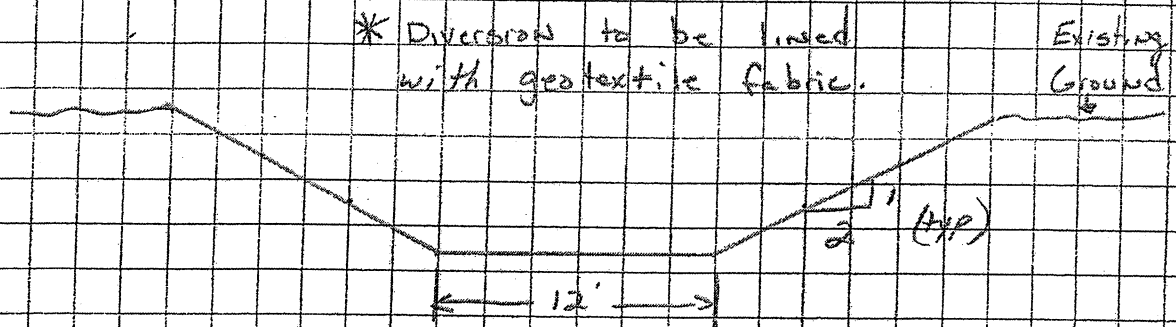 * Diversion to be lined
with geotextile fabric.
Existing
Ground
1
2 (typ)
12'